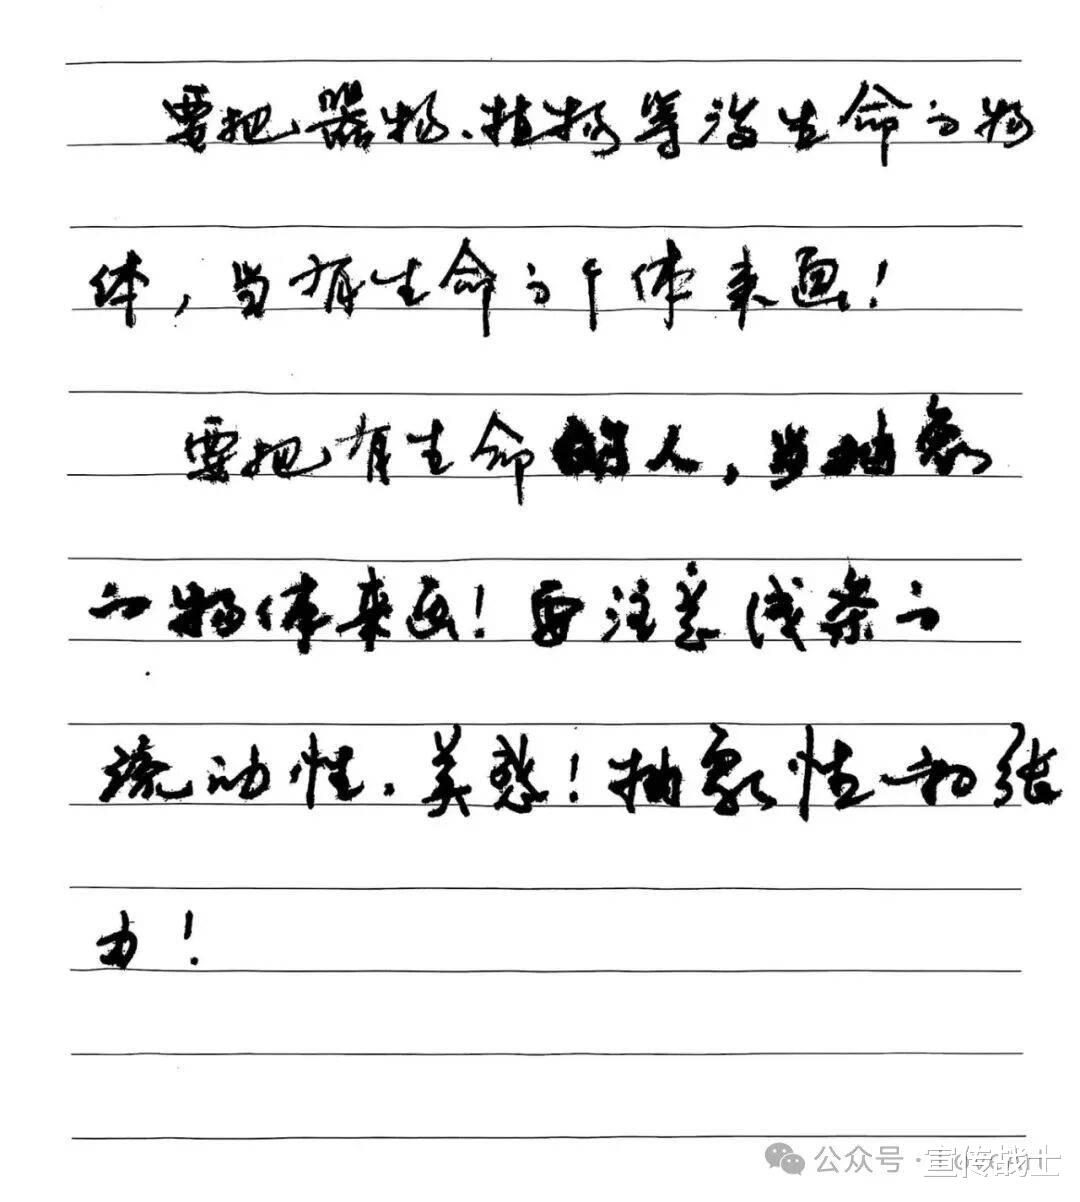 要把器物、植物等没生命的物
体，当有生命的个体来画！
要把有生命的人，当抽象
的物体来画！要注意线条的
流动性、美感！抽象性和张
力！
公众号·宣传战士